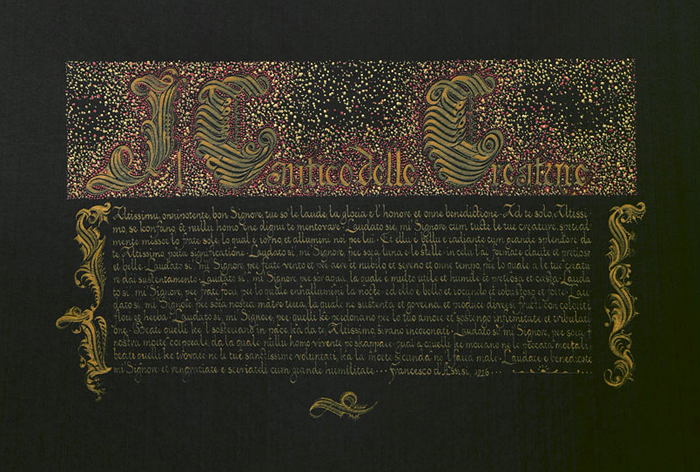 Il Cantico delle Creature
Altissimu, onnipotente, bon Signore, tue so le laude la gloria e l'honore et onne benedictione. Ad te solo, Altissi-
mo, se konfano et nullu homo ène dignu te mentovare. Laudato sie, mi Signore, cum tucte le tue creature, special-
mente messor lo frate sole, lo qual è iorno et allumini noi per lui. Et ellu è bellu e radiante cum grande splendore, da
te Altissimo, porta significatione. Laudato si, mi Signore, per sora luna e le stelle, in celu l'ai formate clarite et pretiose
et belle. Laudato si, mi Signore, per frate vento et per aere et nubilo et sereno et onne tempo, per lo quale a le tue creatu-
re dai sustentamento. Laudato si, mi Signore, per sor aqua, la quale è multo utile et humile et pretiosa et casta. Lauda-
to si, mi Signore, per frate focu, per lo quale enn'allumini la nocte, ed ello è bello et iocundo et robustoso et forte. Lau-
dato si, mi Signore, per sora nostra matre terra, la quale ne sustenta et governa, et produce diversi fructi con coloriti
flori et herba. Laudato si, mi Signore, per quelli ke perdonano per lo tuo amore et sostengo infirmitate et tribulati-
one. Beati quelli ke 'l sosterrano in pace, ka da te, Altissimo, sirano incoronati. Laudato si, mi Signore, per sora
nostra morte corporale, da la quale nullu homo vivente po skappare: guai a quelli ke morrano ne le peccata mortali;
beati quelli ke trovarà ne le tue sanctissime voluntati, ka la morte secunda no 'l farrà male. Laudate e benedicete
mi Signore et rengratiate e serviateli cum grande humilitate... Francesco d'Assisi, 1226...